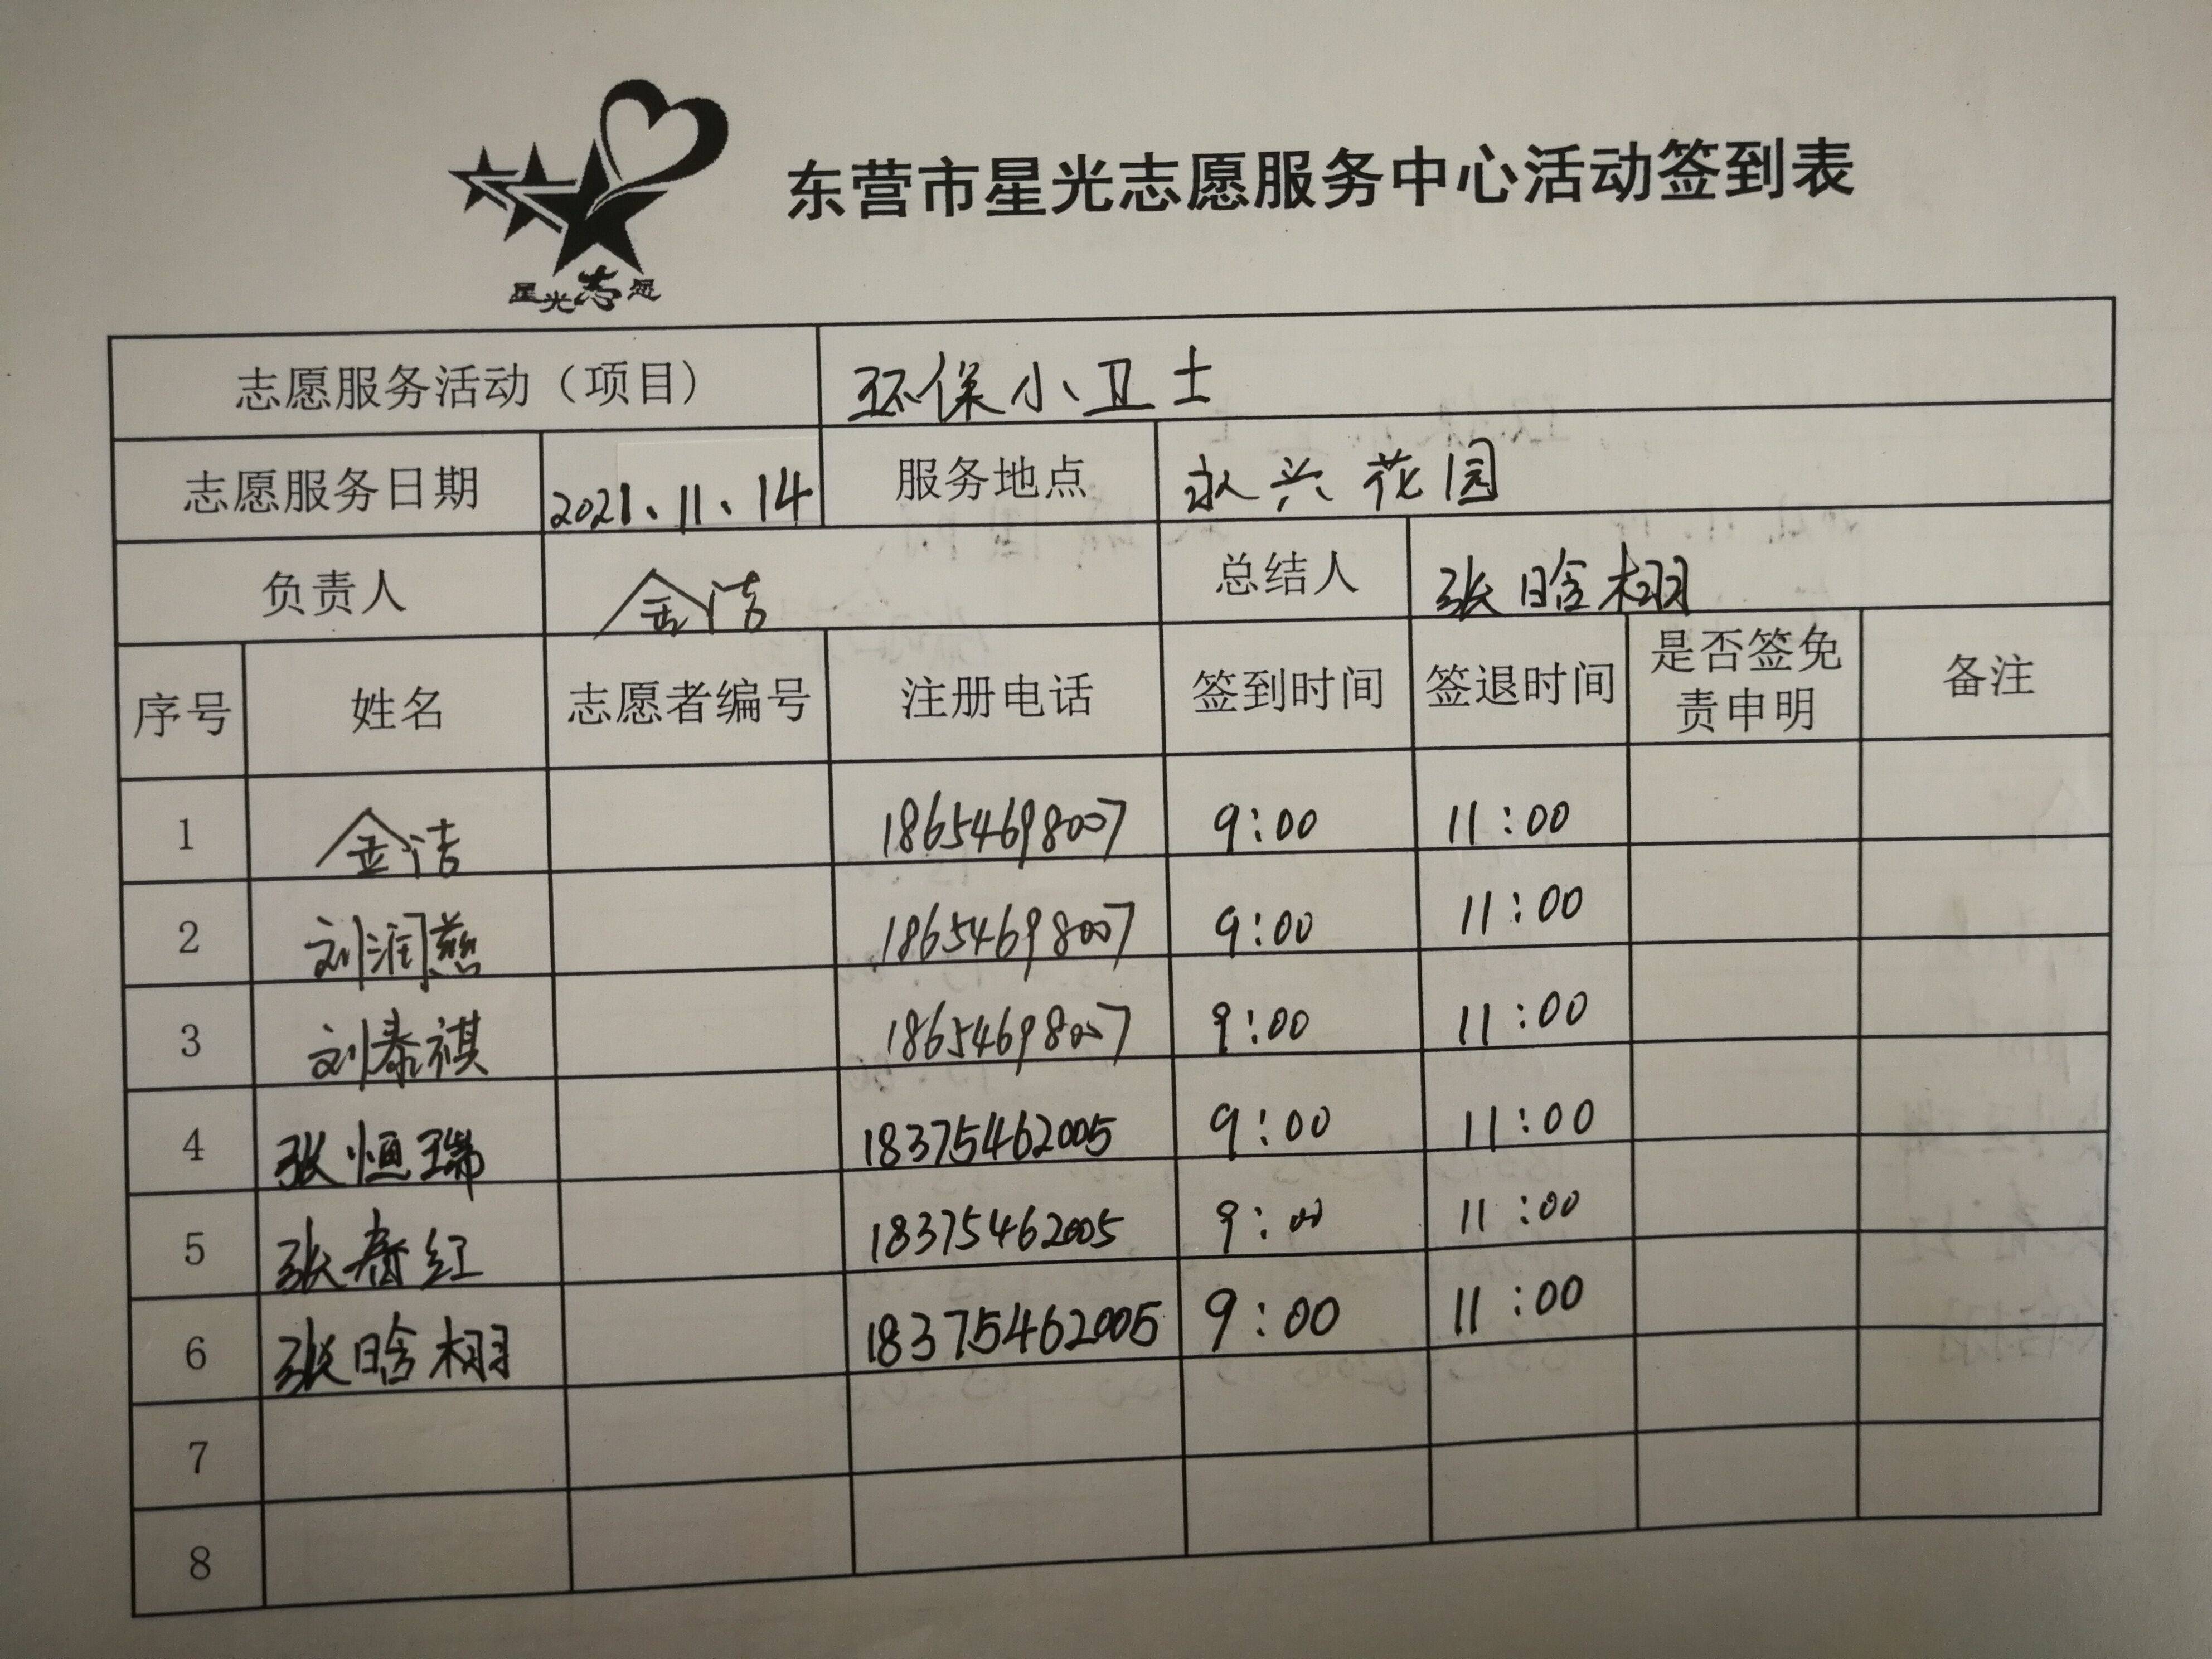 东营市星光志愿服务中心活动签到表
星光志愿
志愿服务活动（项目） 环保小卫士
志愿服务日期 2021、11、14 服务地点 永兴花园
负责人 金洁 总结人 张晗栩
序号 姓名 志愿者编号 注册电话 签到时间 签退时间 是否签免责申明 备注
1 金洁 18654698007 9:00 11:00
2 刘润慈 18654698007 9:00 11:00
3 刘泰祺 18654698007 9:00 11:00
4 张恒瑞 18375462005 9:00 11:00
5 张春红 18375462005 9:00 11:00
6 张晗栩 18375462005 9:00 11:00
7
8